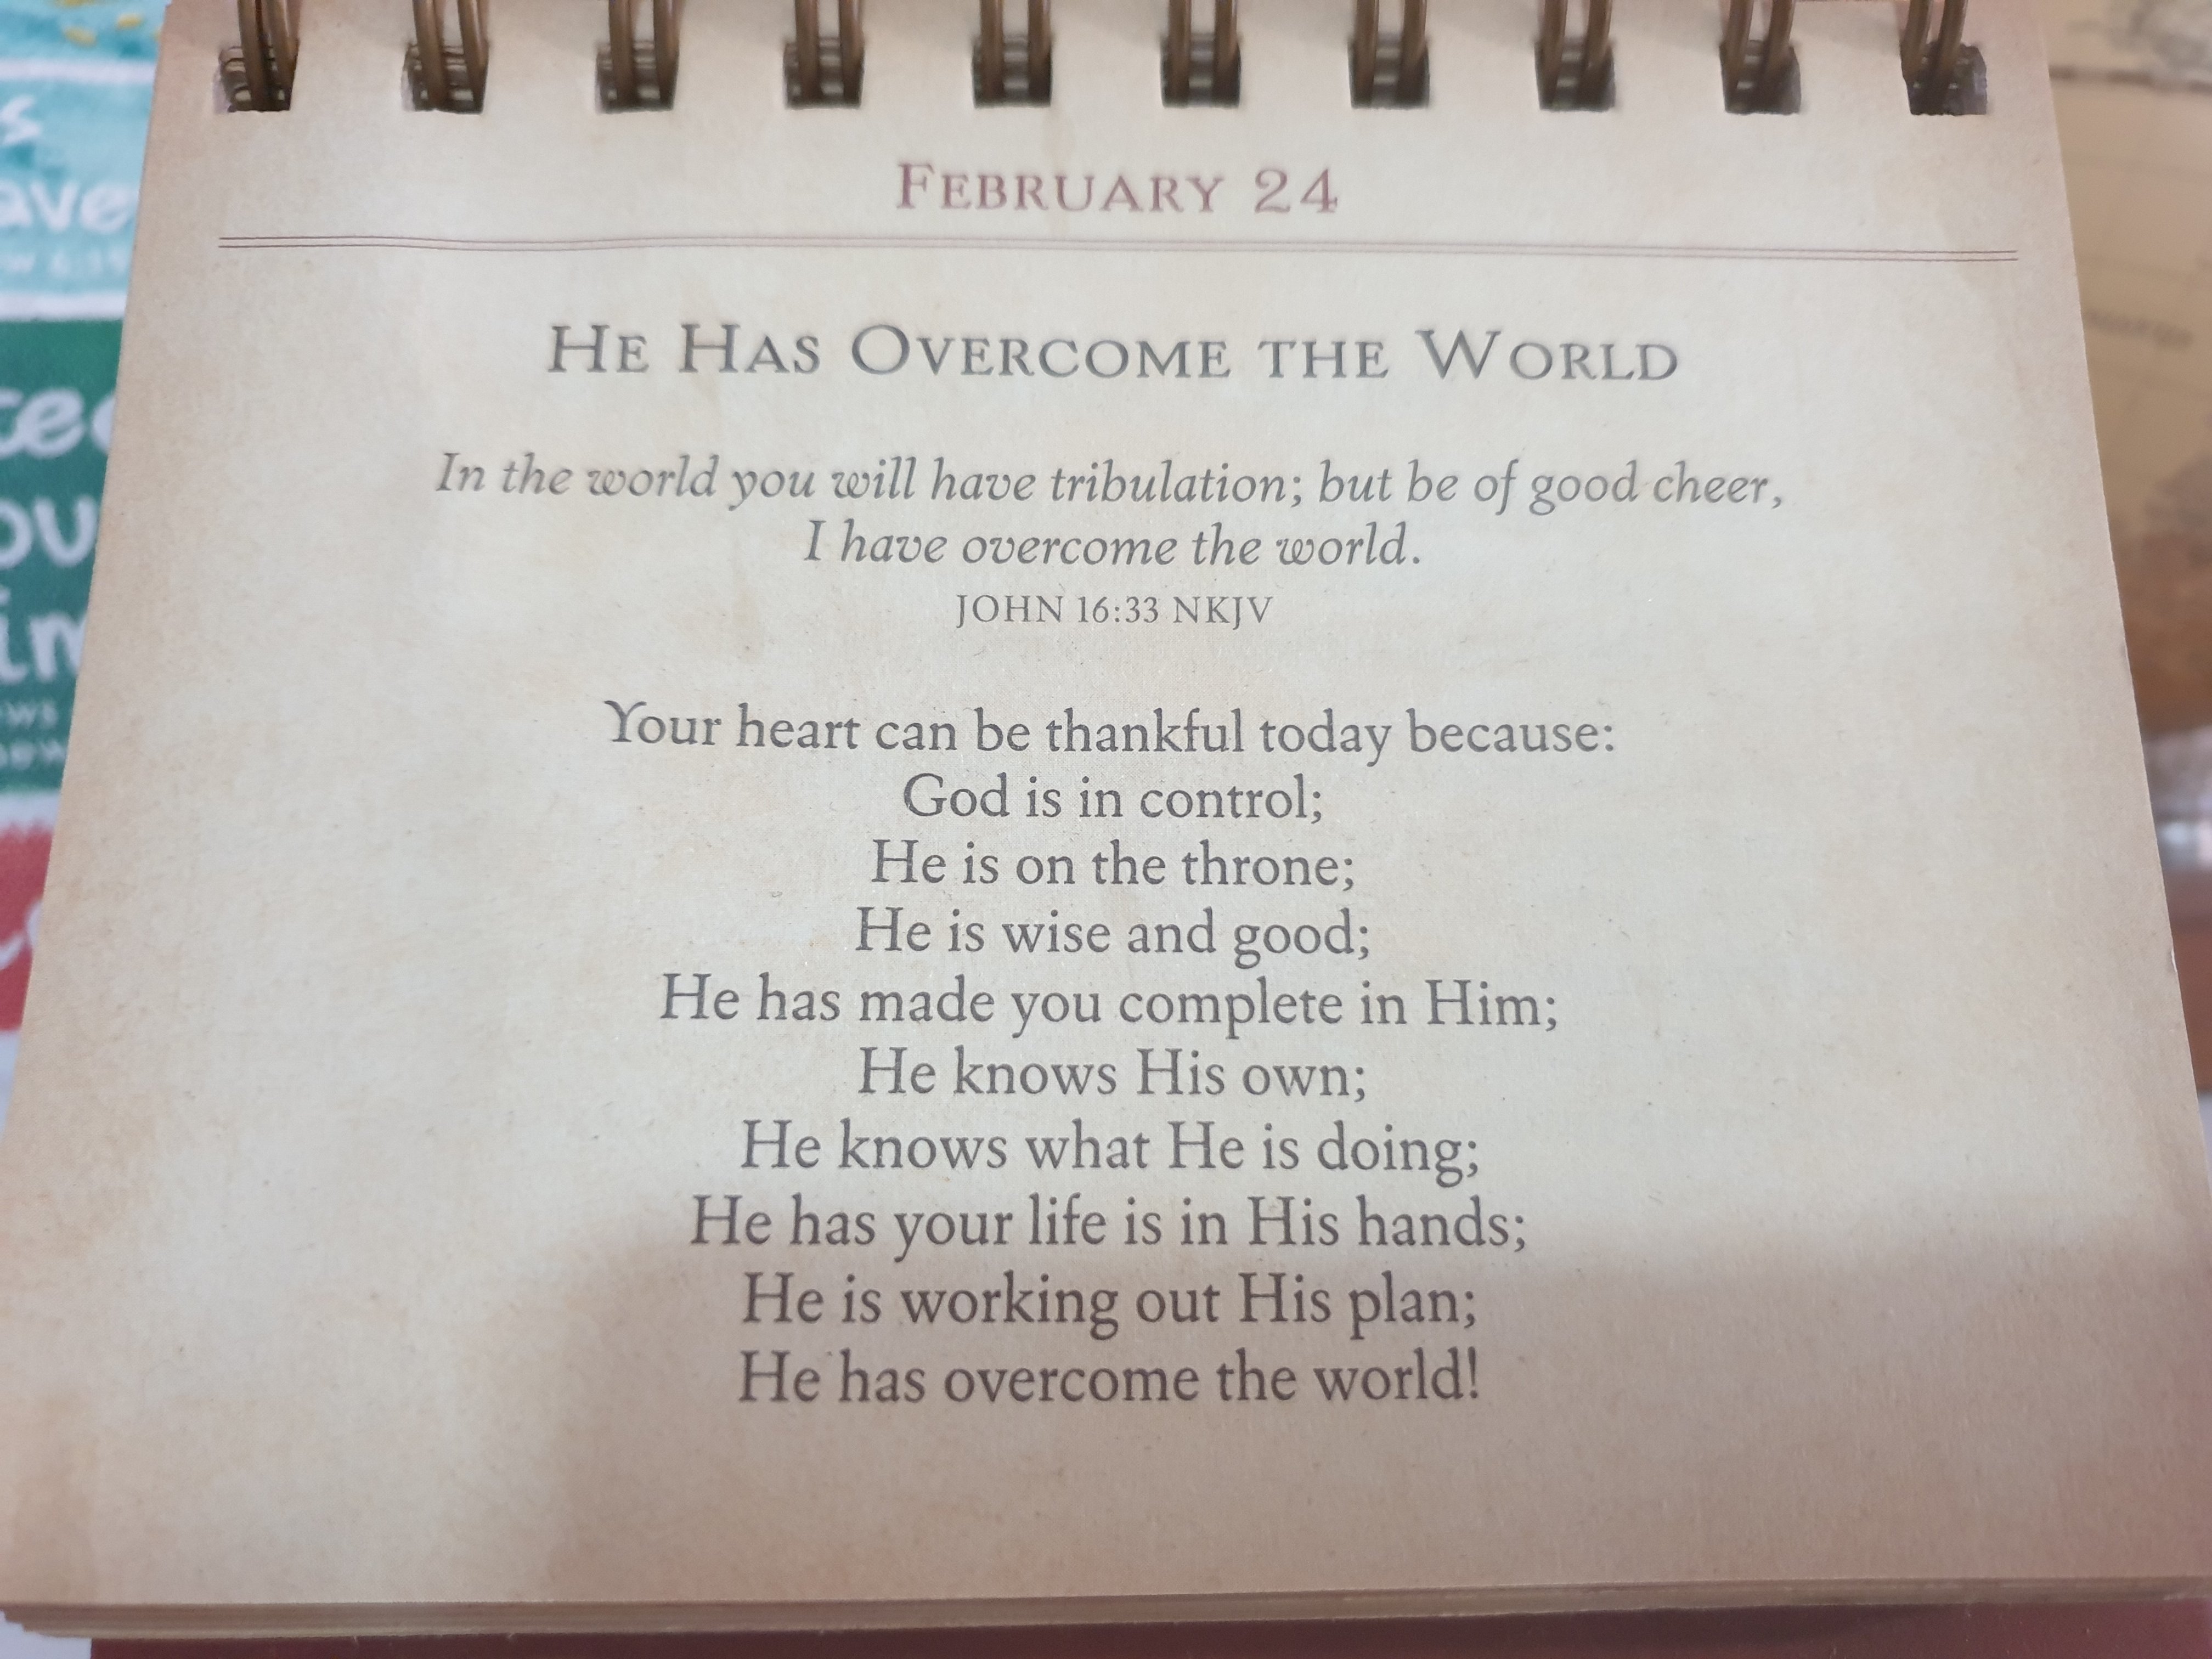 FEBRUARY 24
HE HAS OVERCOME THE WORLD
In the world you will have tribulation; but be of good cheer,
I have overcome the world.
JOHN 16:33 NKJV
Your heart can be thankful today because:
God is in control;
He is on the throne;
He is wise and good;
He has made you complete in Him;
He knows His own;
He knows what He is doing;
He has your life is in His hands;
He is working out His plan;
He has overcome the world!